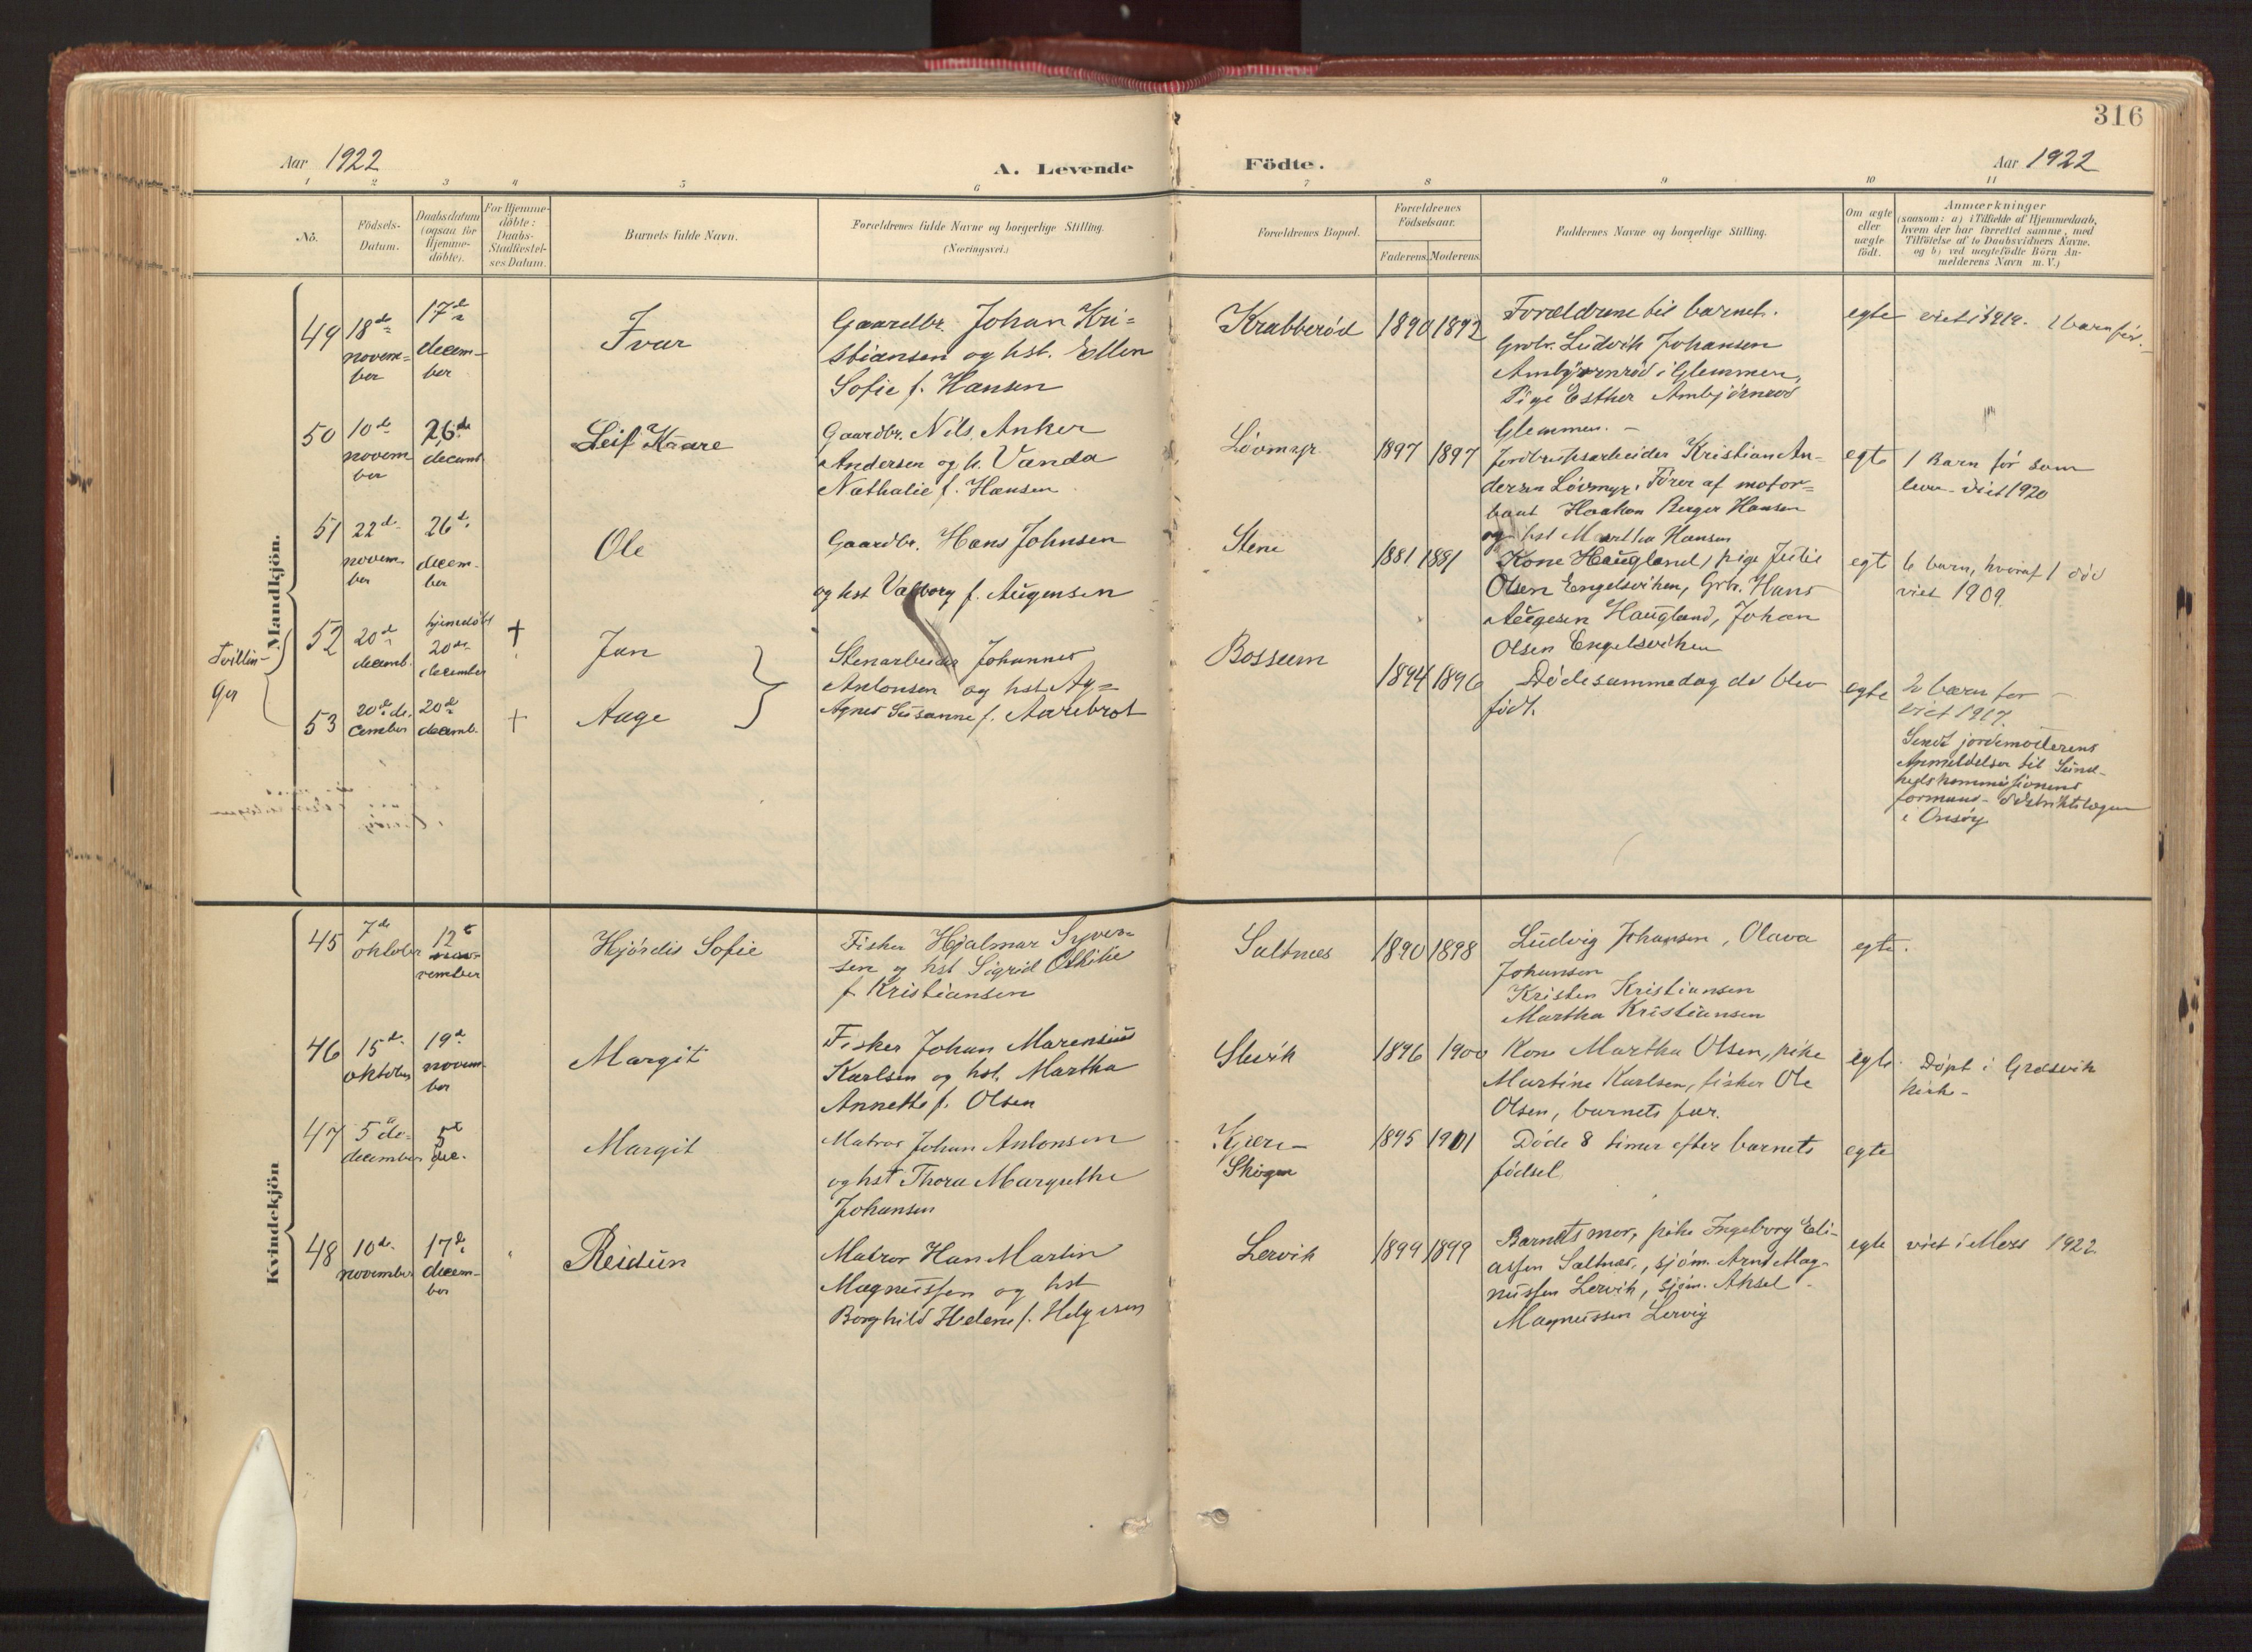 316
Aar 1922
A. Levende
Födte.
Aar 1922
1 2 3 4 5 6 7 8 9 10 11
No.
Födsels-
Datum.
Daabsdatum
(ogsaa for
Hjemme-
döbte).
For Hjemme-
döbte:
Daabs-
Stadfæstel-
ses Datum.
Barnets fulde Navn.
Forældrenes fulde Navne og borgerlige Stilling.
(Næringsvei.)
Forældrenes Bopæl.
Forældrenes
Födselsaar.
Faderens. Moderens.
Faddernes Navne og borgerlige Stilling.
Om ægte
eller
uægte
födt.
Anmærkninger
(saasom: a) i Tilfælde af Hjemmedaab,
hvem der har forrettet samme, med
Tilföielse af to Daabsvidners Navne,
og b) ved uægtefödte Börn An-
melderens Navn m. V.)
Mandkjön.
49
18de
novem-
ber
17de
decem-
ber
Ivar
Gaardbr. Johan Kri-
stiansen og hst. Ellen
Sofie f. Hansen
Krabberød
1890 1892
Forældrene til barnet.
Grbr. Ludvik Johansen
Ambjørnrød i Glemmen,
Pige Esther Ambjørnrød
Glemmen. -
egte
viet i 1919. 1 barn før.
50
10de
novem
ber
26de
decemb
Leif Kaare
Gaardbr. Nils Anker
Andersen og h. Vanda
Nathalie f. Hansen
Løvmyr
1897 1897
Jordbruksarbeider Kristian An-
dersen Løvmyr. Fører af motor-
baat Haakon Berger Hansen
og hst Martha Hansen
egte
1 Barn før som
lever - viet 1920
51
22de
novem
ber
26de
decem-
ber
Ole
Gaardbr. Hans Johnsen
og hst Valborg f. Augensen
Stene
1881 1881
Kone Haugland, pige Julie
Olsen Engelsviken, Grbr. Hans
Augesen Haugland, Johan
Olsen Engelsviken
egte
6 barn, hvoraf 1 død
viet 1909.
Tvillin-
ger
52
20de
decemb.
hjemedøbt
20de
december
+
Jan
Stenarbeider Johannes
Antonsen og hst. Ag=
Agnes Susanne f. Aarebrot
Bossum
1894 1896
Døde samme dag de blev
født.
egte
2 barn før
viet 1917.
Sendt jordemoderens
Anmeldelser til Sund-
hedskommissionens
formand - distriktslægen
i Onsøy
53
20de de.
cember
20de
decemb.
+
Aage
Kvindekjön
45
7de
oktober
12te
nov-
vember
Hjørdis Sofie
Fisker Hjalmar Syver-
sen og hst Sigrid Othilie
f Kristiansen
Saltnes
1890 1898
Ludvig Johansen, Olava
Johansen
Kristen Kristiansen
Martha Kristiansen
egte.
46
15de
oktober
19de
novem-
ber
Margit
Fisker Johan Marensius
Karlsen og hst. Martha
Annette f. Olsen
Slevik
1896 1900
Kone Martha Olsen, pike
Martine Karlsen, fisker Ole
Olsen, barnets far.
egte.
Døpt i Gresvik
kirke -
47
5 de-
december
5te
dec.
Margit
Matros Johan Antonsen
og hst Thora Margrethe
Johansen
Kjære-
Skogen
1895 1901
Døde 8 timer efter barnets
fødsel
egte
48
10de
november
17de
decem-
ber
Reidun
Matros Hans Martin
Magnussen og hst
Borghild Helene f. Helgesen
Lervik
1899 1899
Barnets mor, pike Ingeborg Eli-
assen Saltnes, sjøm. Arnt Mag-
nussen Lervik, sjøm. Aksel
Magnussen Lervig
egte
viet i Moss 1922